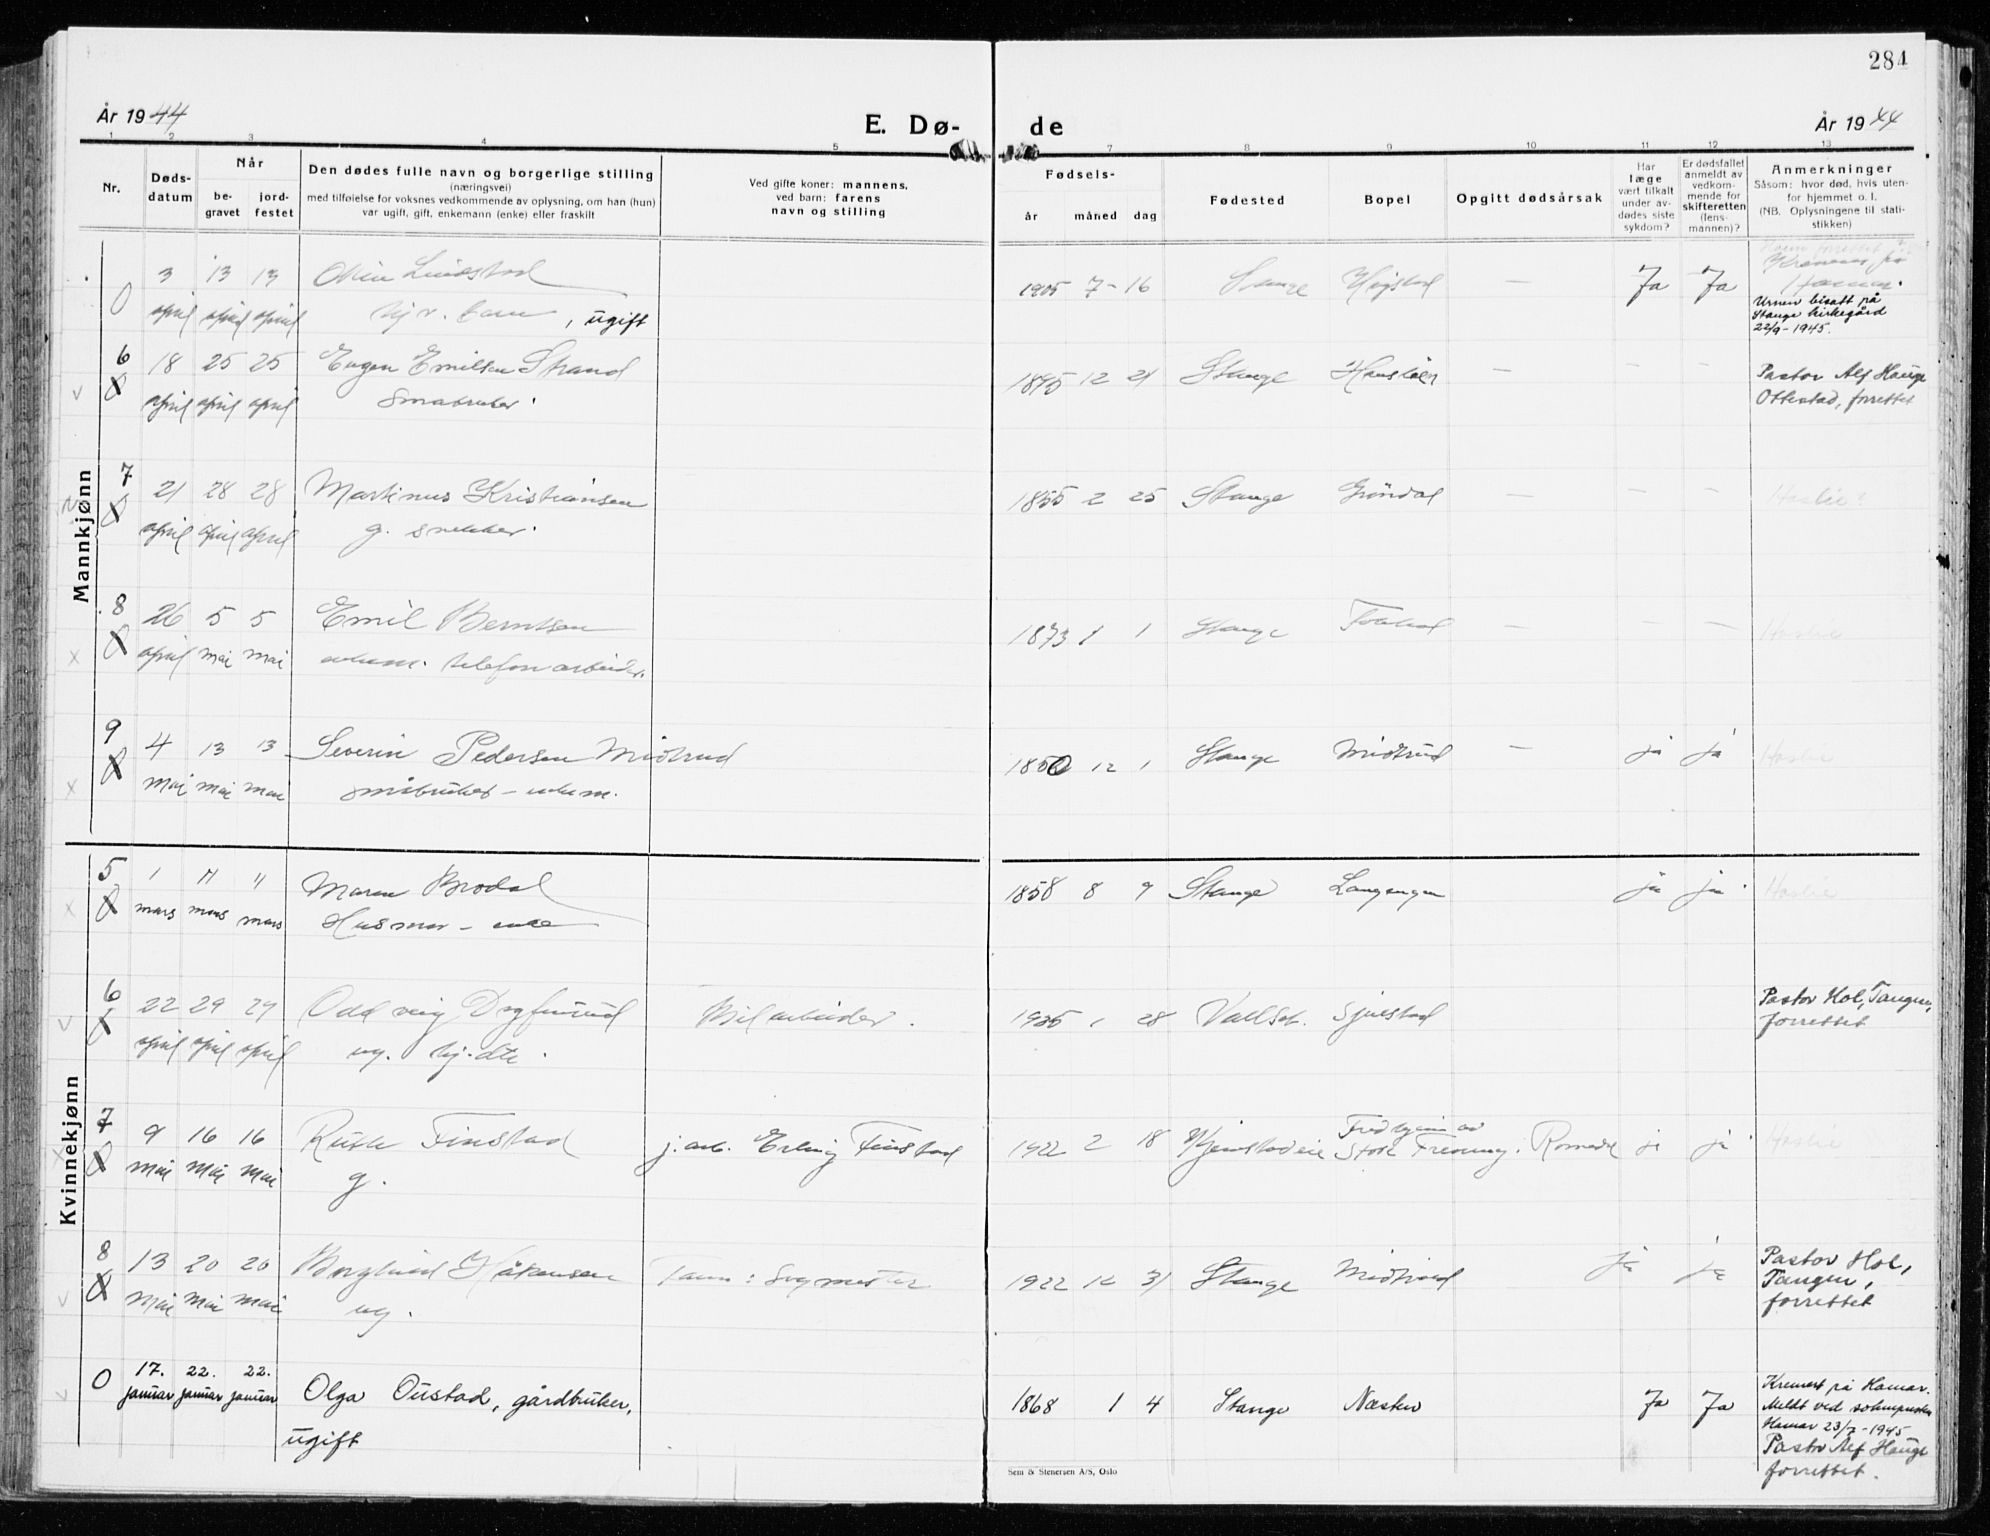 284
År 1944
E. Dø-
de
År 1944
1 2 3 4 5 7 8 9 10 11 12 13
Nr.
Døds-
datum
Når
be-
gravet
jord-
festet
Den dødes fulle navn og borgerlige stilling
(næringsvei)
med tilføielse for voksnes vedkommende av oplysning, om han (hun)
var ugift, gift, enkemann (enke) eller fraskilt
Ved gifte koner: mannens,
ved barn: farens
navn og stilling
Fødsels-
år måned dag
Fødested
Bopel
Opgitt dødsårsak
Har
læge
vært tilkalt
under av-
dødes siste
sykdom?
Er dødsfallet
anmeldt av
vedkom-
mende for
skifteretten
(lens-
mannen)?
Anmerkninger
Såsom: hvor død, hvis uten-
for hjemmet o. l.
(NB. Oplysningene til stati-
stikken)
Mannkjønn
0 3 13 13 Lindstad 1905 7 - 16 Stange — Ja Ja
april april april , ugift
Urnen bisatt på
Stange kirkegård
22/9 - 1945.
6 18 25 25 Eugen Emilsen Strand 1875 12 21 Stange — — — Pastor Alf Hauge
april april april Småbruker. Ottestad, forrettet
7 21 28 28 Martinus Kristiansen 1855 2 25 Stange Gröndal — — — Haslie
april april april g. snekker.
8 26 5 5 Emil Berntsen 1873 1 1 Stange — — — Haslie
april mai mai telefonarbeider.
9 4 13 13 Severin Pedersen Midtrud 1850 12 1 Stange Midtrud — ja ja Haslie
mai mai mai småbruker -
Kvinnekjønn
5 1 11 11 Maren Brodal 1858 8 9 Stange ja ja Haslie
mars mars mars Husmor - enke
6 22 29 29 Oddveig 1935 1 28 Vallset Pastor Hol, Tangen,
april april april ug. forrettet
7 9 16 16 Ruth Finstad j.arb. Erling Finstad 1922 2 18 Romedal ja ja Haslie
mai mai mai g.
8 13 20 20 Borghild Håkensen 1922 12 31 Stange ja ja Pastor Hol,
mai mai mai ug. Tangen,
forrettet
0 17. 22. 22. Olga Oustad, gårdbruker, 1868 1 4 Stange Næsten Ja Ja Kremert på Hamar.
januar januar januar Meldt ved soknepresten
ugift Hamar 23/7 - 1945
Pastor Alf Hauge
forrettet.
Sem & Stenersen A/S, Oslo